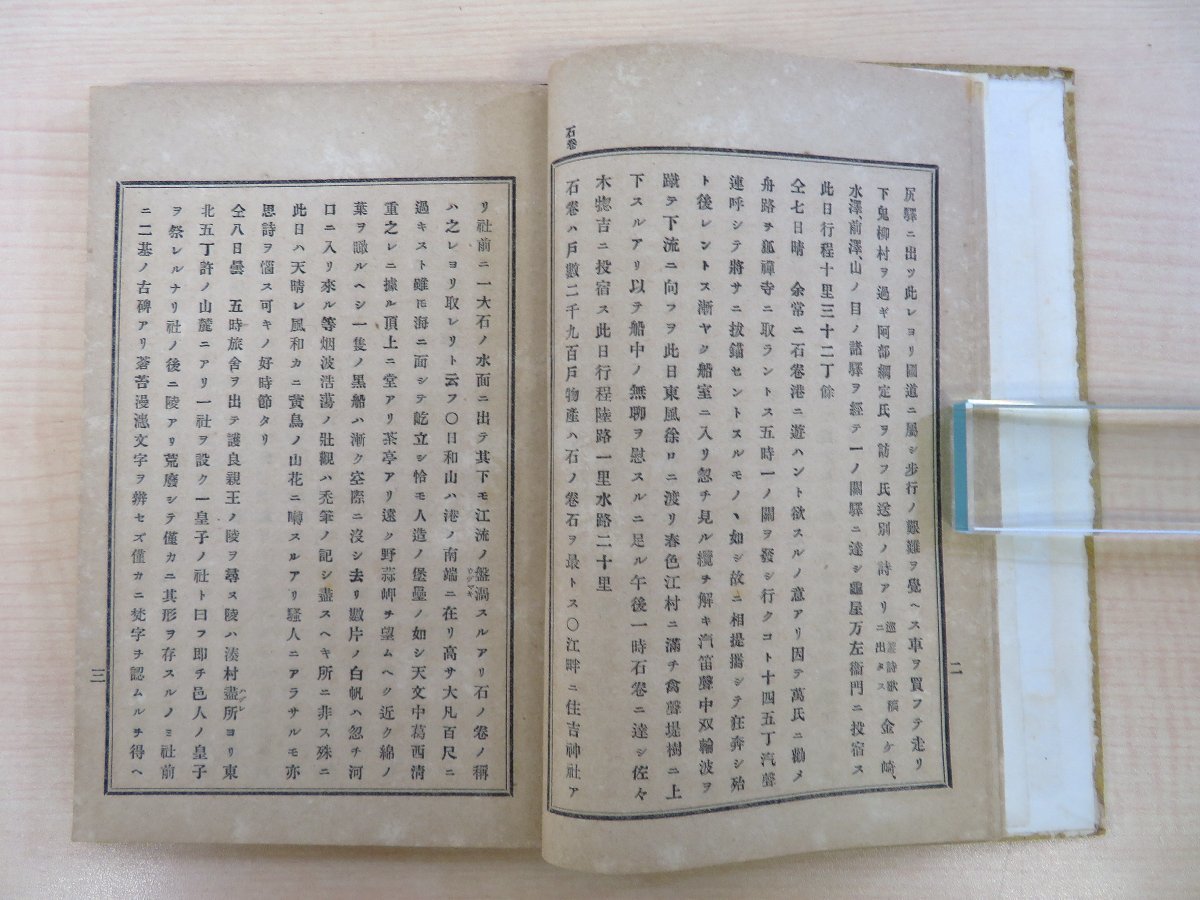 尻驛ニ出ツ此レヨリ國道ニ屬シ歩行ノ艱難ヲ覺ヘス車ヲ買フテ走リ
下鬼柳村ヲ過ギ阿部綱定氏ヲ訪フ氏送別ノ詩アリ巡遊詩歌稿ニ出タス金ケ崎、
水澤、前澤、山ノ目ノ諸驛ヲ經テ一ノ關驛ニ達シ龜屋万左衞門ニ投宿ス
此日行程十里三十二丁餘
仝七日晴 余常ニ石卷港ニ遊ハント欲スルノ意アリ因テ萬氏ニ勸メ
舟路ヲ狐禪寺ニ取ラントス五時一ノ關ヲ發シ行クコト十四五丁汽聲
連呼シテ將サニ拔錨セントスルモノヽ如シ故ニ相提攜シテ狂奔シ殆
ト後レントス漸ヤク船室ニ入リ忽チ見ル纜チ解キ汽笛聲中双輪波ヲ
蹴テ下流ニ向フヲ此日東風徐ロニ渡リ春色江村ニ滿チ禽聲堤樹ニ上
下スルアリ以テ船中ノ無聊ヲ慰スルニ足ル午後一時石卷ニ達シ佐々
木惣吉ニ投宿ス此日行程陸路一里水路二十里
石卷
石卷ハ戸數二千九百戸物產ハ石ノ卷石ヲ最トス〇江畔ニ住吉神社ア
二
リ社前ニ一大石ノ水面ニ出テ其下モ江流ノ盤渦スルアリ石ノ卷ノ稱
ウヅマキ
ハ之レヨリ取レリト云フ〇日和山ハ港ノ南端ニ在リ高サ大凡百尺ニ
過キスト雖モ海ニ面シテ屹立シ恰モ人造ノ堡壘ノ如シ天文中葛西淸
重之レニ據ル頂上ニ堂アリ茶亭アリ遠ク野蒜岬チ望ムヘク近ク綿ノ
葉ヲ瞰ルヘシ一隻ノ黑船ハ漸ク空際ニ沒シ去リ數片ノ白帆ハ忽チ河
口ニ入リ來ル等烟波浩蕩ノ壯觀ハ禿筆ノ記シ盡スヘキ所ニ非ス殊ニ
此日ハ天晴レ風和カニ黃鳥ノ山花ニ囀スルアリ騷人ニアラサルモ亦
思詩ヲ惱ス可キノ好時節タリ
仝八日曇 五時旅舍ヲ出テ護良親王ノ陵ヲ尋ヌ陵ハ湊村盡所ヨリ東
ハヅレ
北五丁許ノ山麓ニアリ一社ヲ設ク一皇子ノ社ト曰フ即チ邑人ノ皇子
ヲ祭レルナリ社ノ後ニ陵アリ荒廢シテ僅カニ其形ヲ存スルノミ社前
ニ二基ノ古碑アリ蒼苔漫漶文字ヲ辨セズ僅カニ梵字チ認ムルチ得ヘ
三